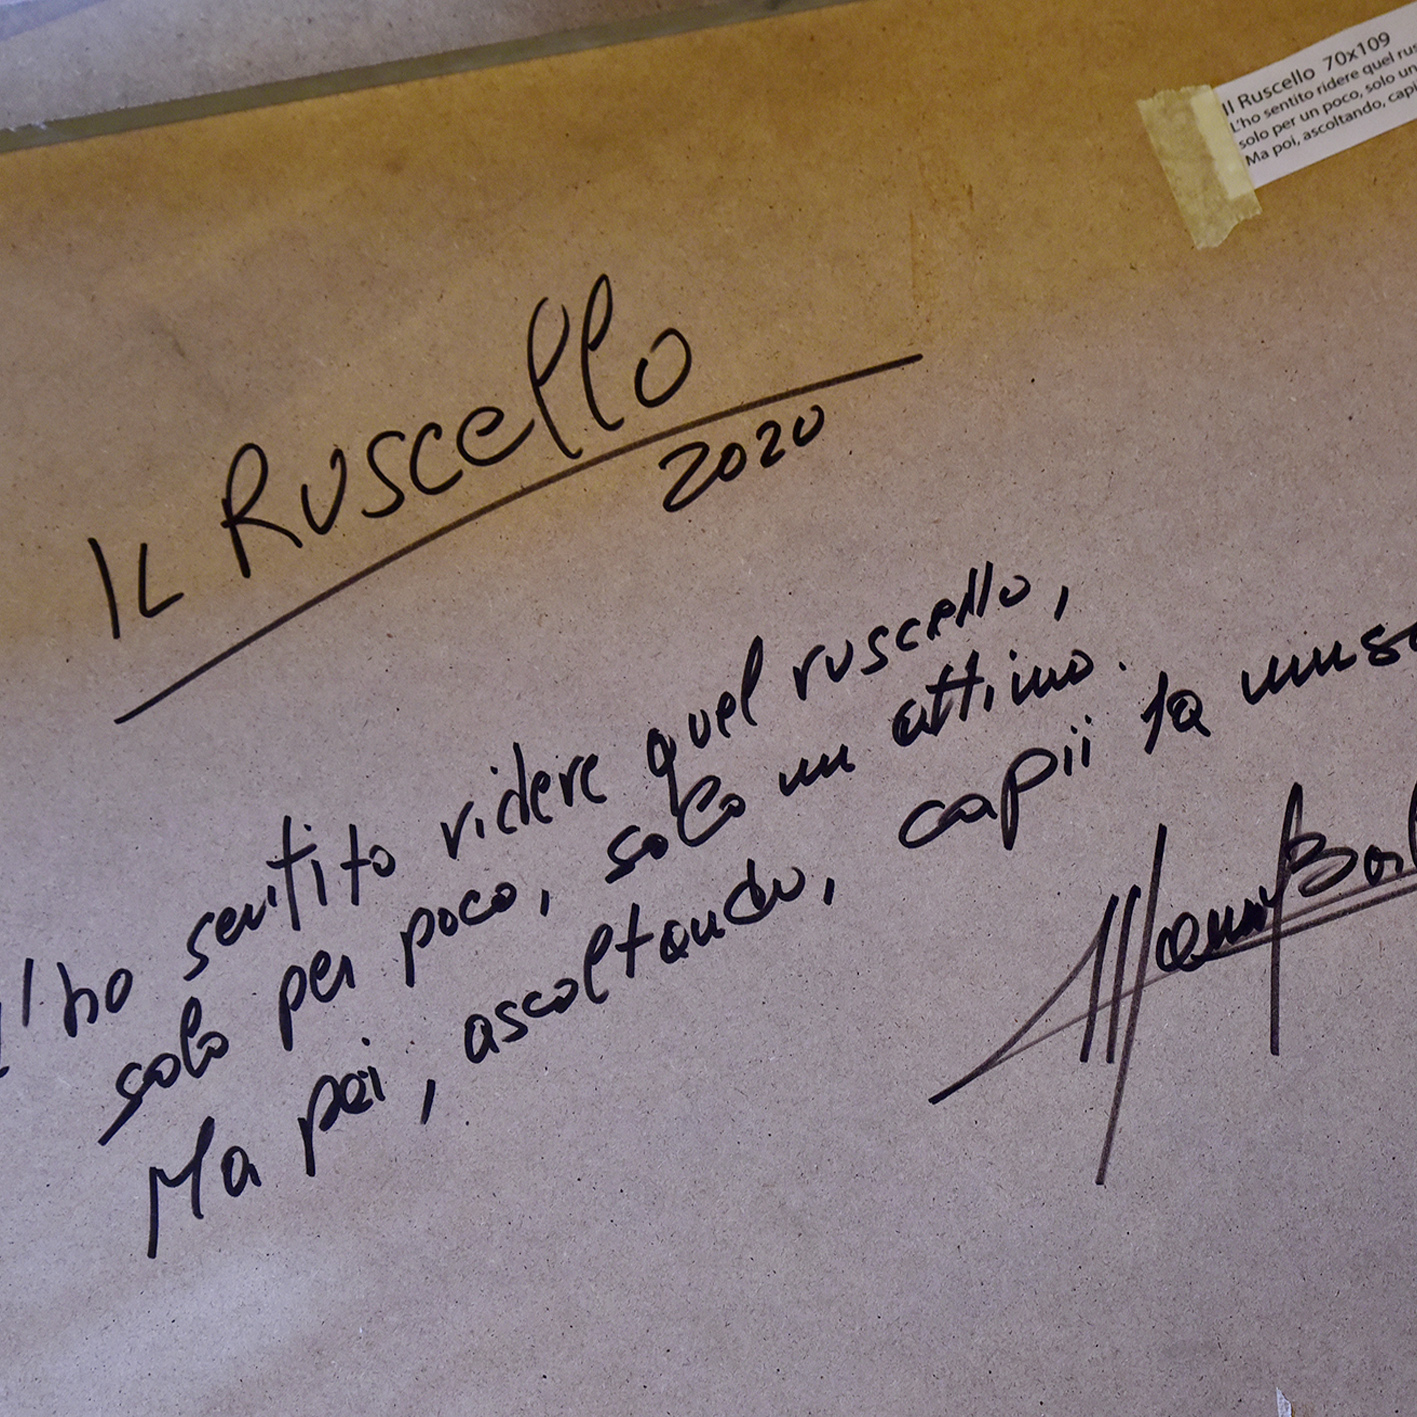 Il Ruscello 70x109
L'ho sentito ridere quel rus
solo per un poco, solo un
Ma poi, ascoltando, capi
IL Ruscello
2020
L'ho sentito ridere quel ruscello,
solo per poco, solo un attimo.
Ma poi, ascoltando, capii la